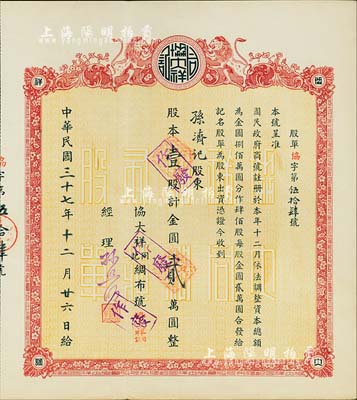 上海陽明拍賣
協大祥
記
股單協字第伍拾肆號
本號呈准
國民政府商號註冊於本年十二月依法調整資本總額
為金圓捌佰萬圓分作肆佰股每股金圓貳萬圓合發給
記名股單為股東出資憑證今收到
孫濟記股東
股本壹股計金圓貳萬圓整
協大祥綢布號
經理
中華民國三十七年十二月廿六日給
作廢
作廢